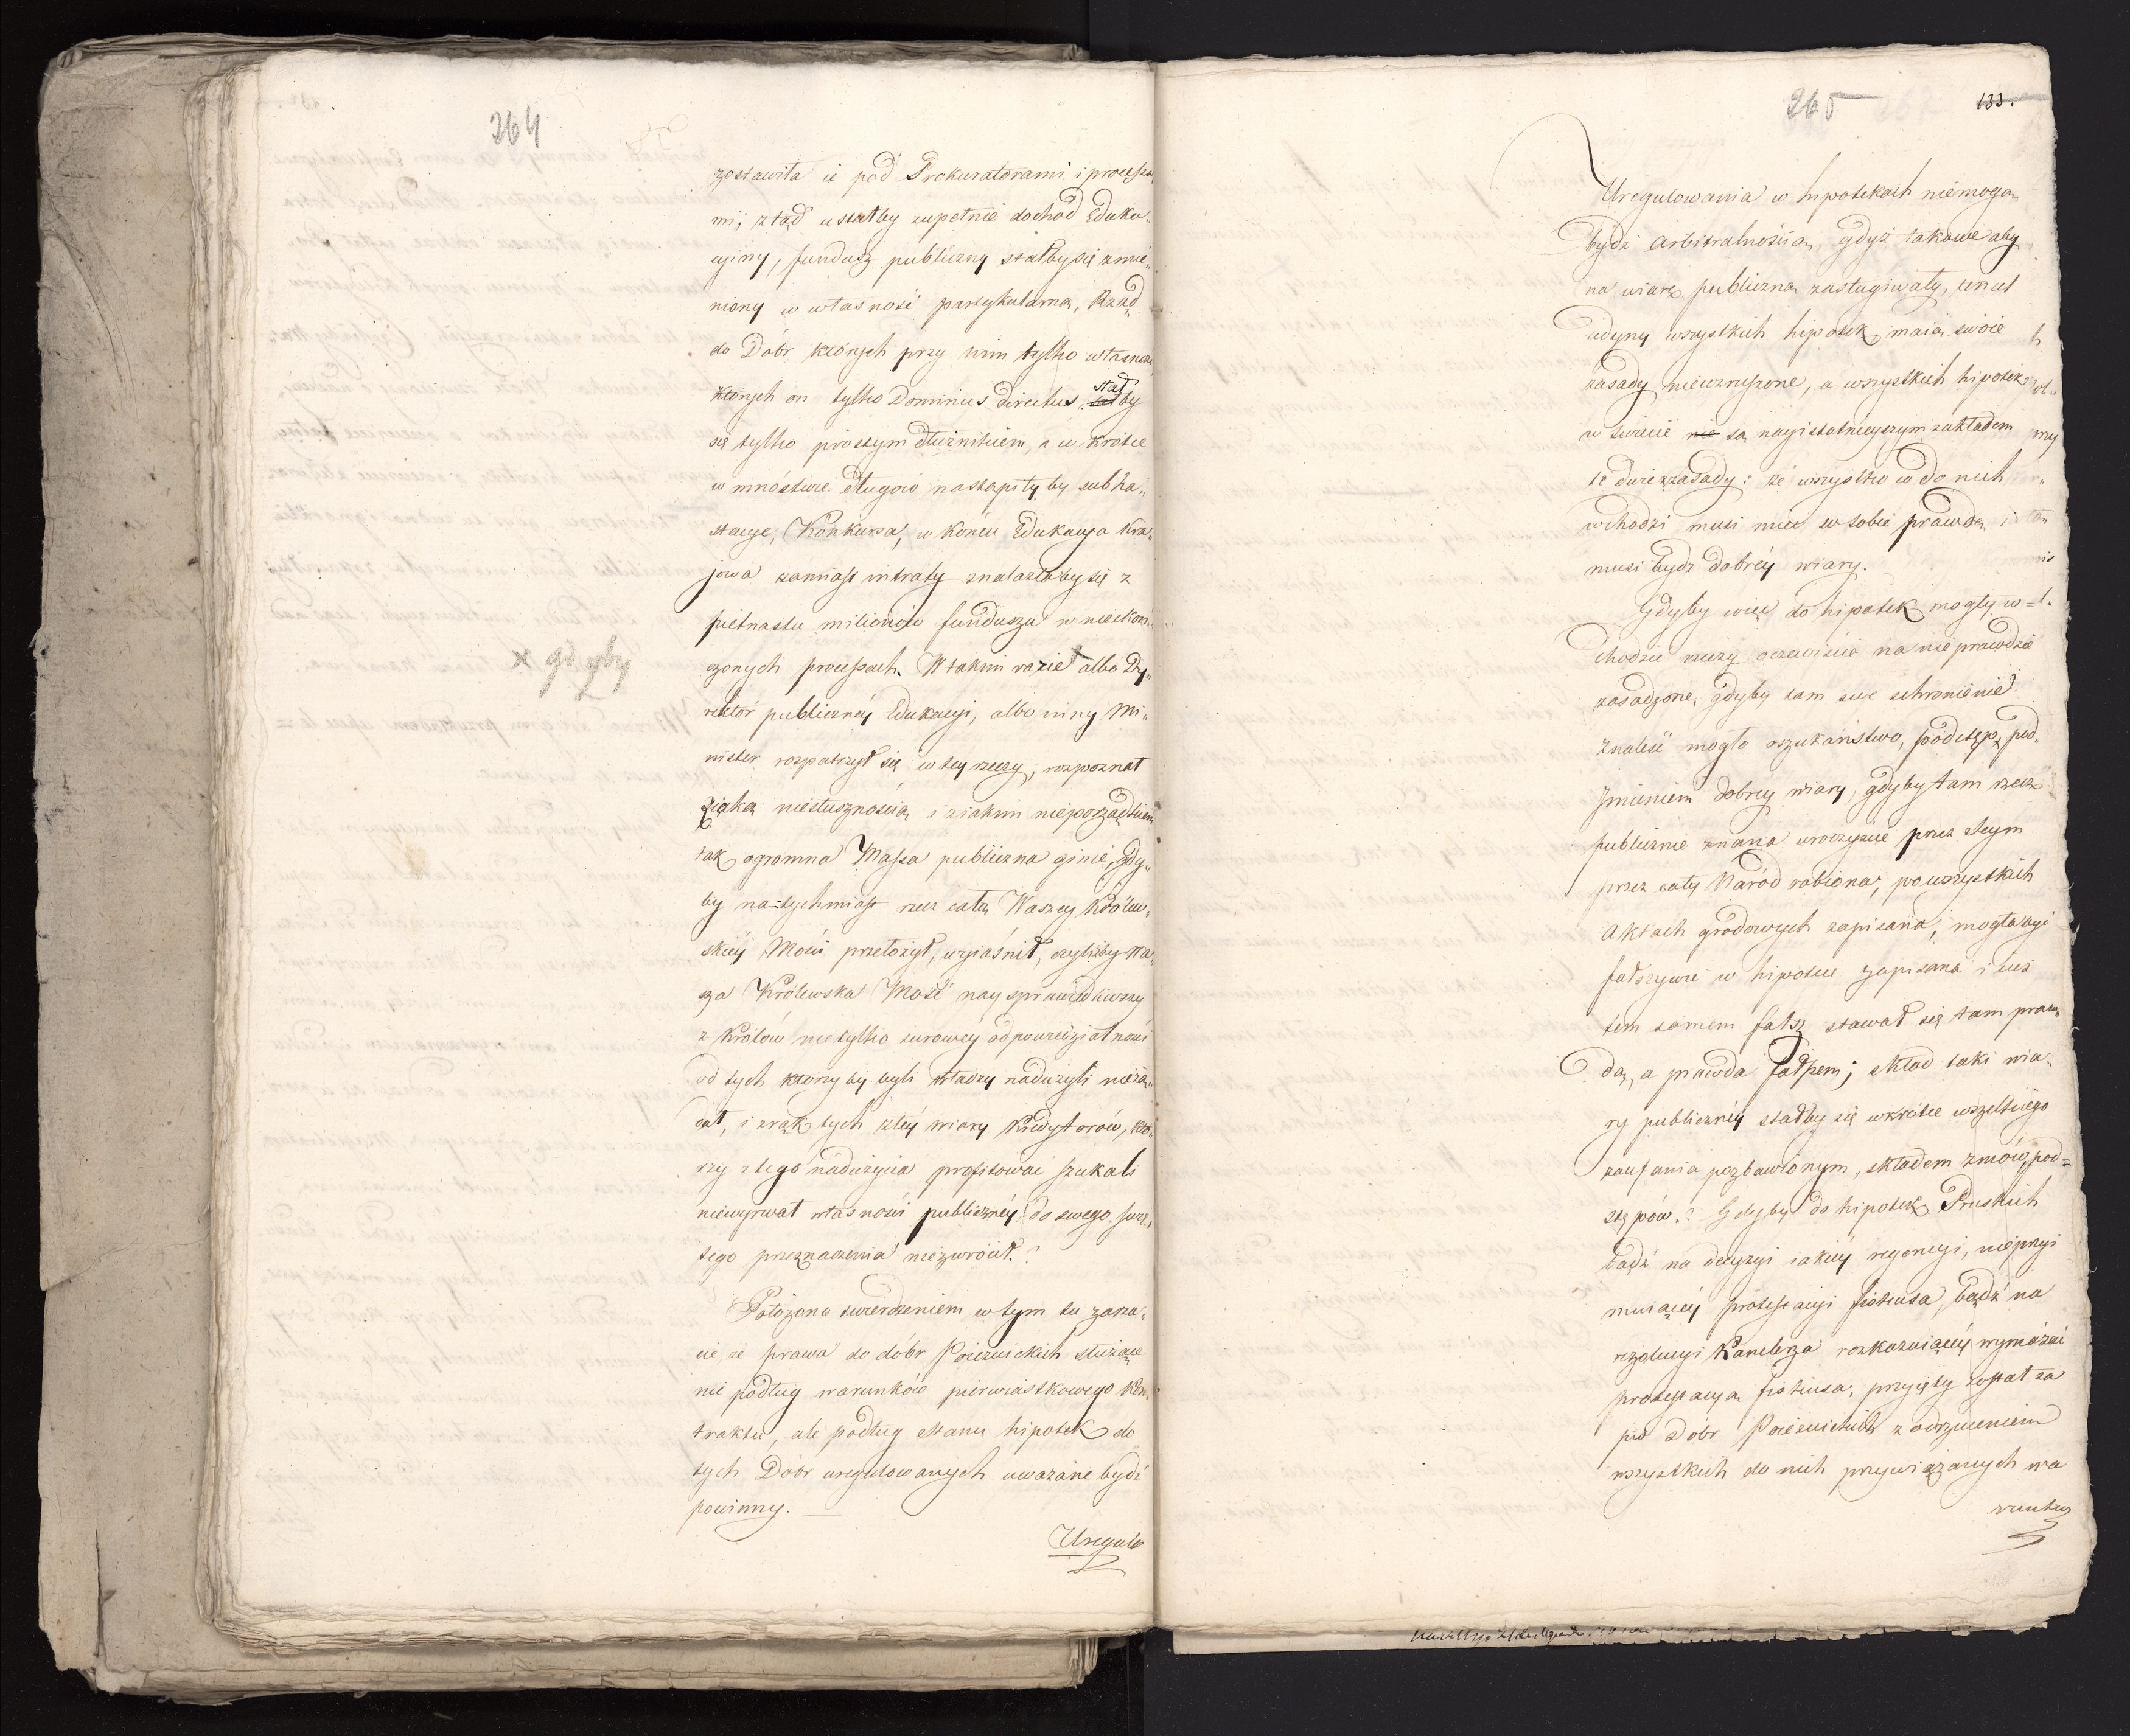 264
zostawiła ie pod Prokuratorami i processa
mi; ztąd ustałby zupełnie dochód Eduka„
cyiny, fundusz publiczny stałby się zmie„
niony w własność partykularną, Rząd
do Dóbr których przy nim tylko własność
których on tylko Dominus directus, stałby
się tylko prostym dłużnikiem, a w krótce
w mnóstwie długow nastąpiły by subha„
stacye, Konkursa, w końcu Edukacya kra„
jowa zamiast intraty znalazłaby się z
pietnastu milionow funduszu w nieskoń„
czonych processach. W takim razie albo Dy„
x gdyby
rektor publiczney Edukacyi, albo inny Mi„
nister rozpatrzył się w tey rzeczy, rozpoznał
z iaką niesłusznością i z iakim nieporządkiem
tak ogromna Massa publiczna ginie, gdy„
by natychmiast rzecz całą Waszey Królew„
skiey Mości przełożył, wyiaśnił, czyliżby Wa„
sza Królewska Mość naysprawiedliwszy
z Królów nietylko surowey odpowiedzialności
od tych ktorzy by byli władzy nadużyli nieżą„
dał, i z rąk tych złey wiary Kredytorów, któ„
rzy z tego nadużycia profitować szukali
niewyrwał własności publiczney do swego świę„
tego przeznaczenia niezwrócił.?
Położono twierdzeniem w tym tu zarzu„
cie, że prawa do dóbr Poiezuickich służące
nie podług warunków pierwiastkowego Kon„
traktu, ale podług stanu hipotek do
tych Dóbr uregulowanych uważane bydź
powinny. —
Uregulo
265
133.
Uregulowania w hipotekach niemogą
bydź arbitralnością, gdyż takowe aby
na wiarę publiczną zasługiwały, iunct
iedyny wszystkich hipotek maią swoie
zasady niewzruszone, a wszystkich hipotek
w świecie nie są nayistotnieyszym zakładem
te dwie zasady: że wszystko co do nich
wchodzi musi mieć w sobie prawdę,
musi bydz dobréy wiary.
Gdyby więc do hipotek mogły w=
chodzić rzeczy oczewiście na nieprawdzie
zasadzone, gdyby tam swe schronienie
znaleść mogło oszukaństwo, podstęp, pod„
Imieniem dobrey wiary, gdyby tam rzecz
publicznie znana uroczyście przez Seym
przez cały Naród robiona, po wszystkich
Aktach grodowych zapisana, mogła być
fałszywie w hipotece zapisana i też
tem samem fałsz stawał się tam praw„
dą, a prawda fałszem; skład taki wia„
ry publicznéy stałby się wkrótce wszelkiego
zaufania pozbawionym, składem zmów, pod=
stępów.? Gdyby do hipotek Pruskich
bądź na decyzyi iakiey regencyi, nieprzyi
muiącey protestacyi fiskusa, bądź na
rezolucyi Kanclerza rozkazuiącey wymazać
protestacyą fiskusa, przyięty został za
pis Dóbr Poiezuickich z odrzuceniem
wszystkich do nich przywiązanych wa
runków